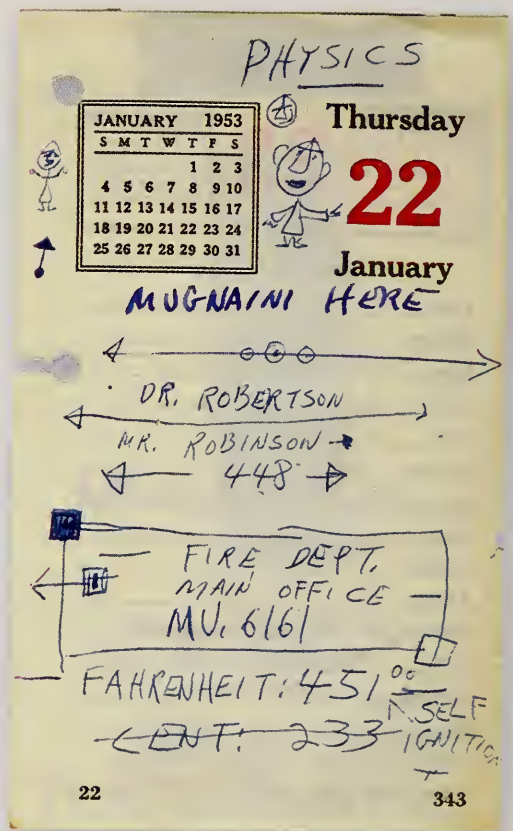 PHYSICS
JANUARY 1953
S M T W T F S
1 2 3
4 5 6 7 8 9 10
11 12 13 14 15 16 17
18 19 20 21 22 23 24
25 26 27 28 29 30 31
Thursday
22
January
MUGNAINI HERE
DR. ROBERTSON
MR. ROBINSON
448
FIRE DEPT.
MAIN OFFICE
MU. 6161
FAHRENHEIT: 451°
SELF
IGNITION
CENT: 233
22 343